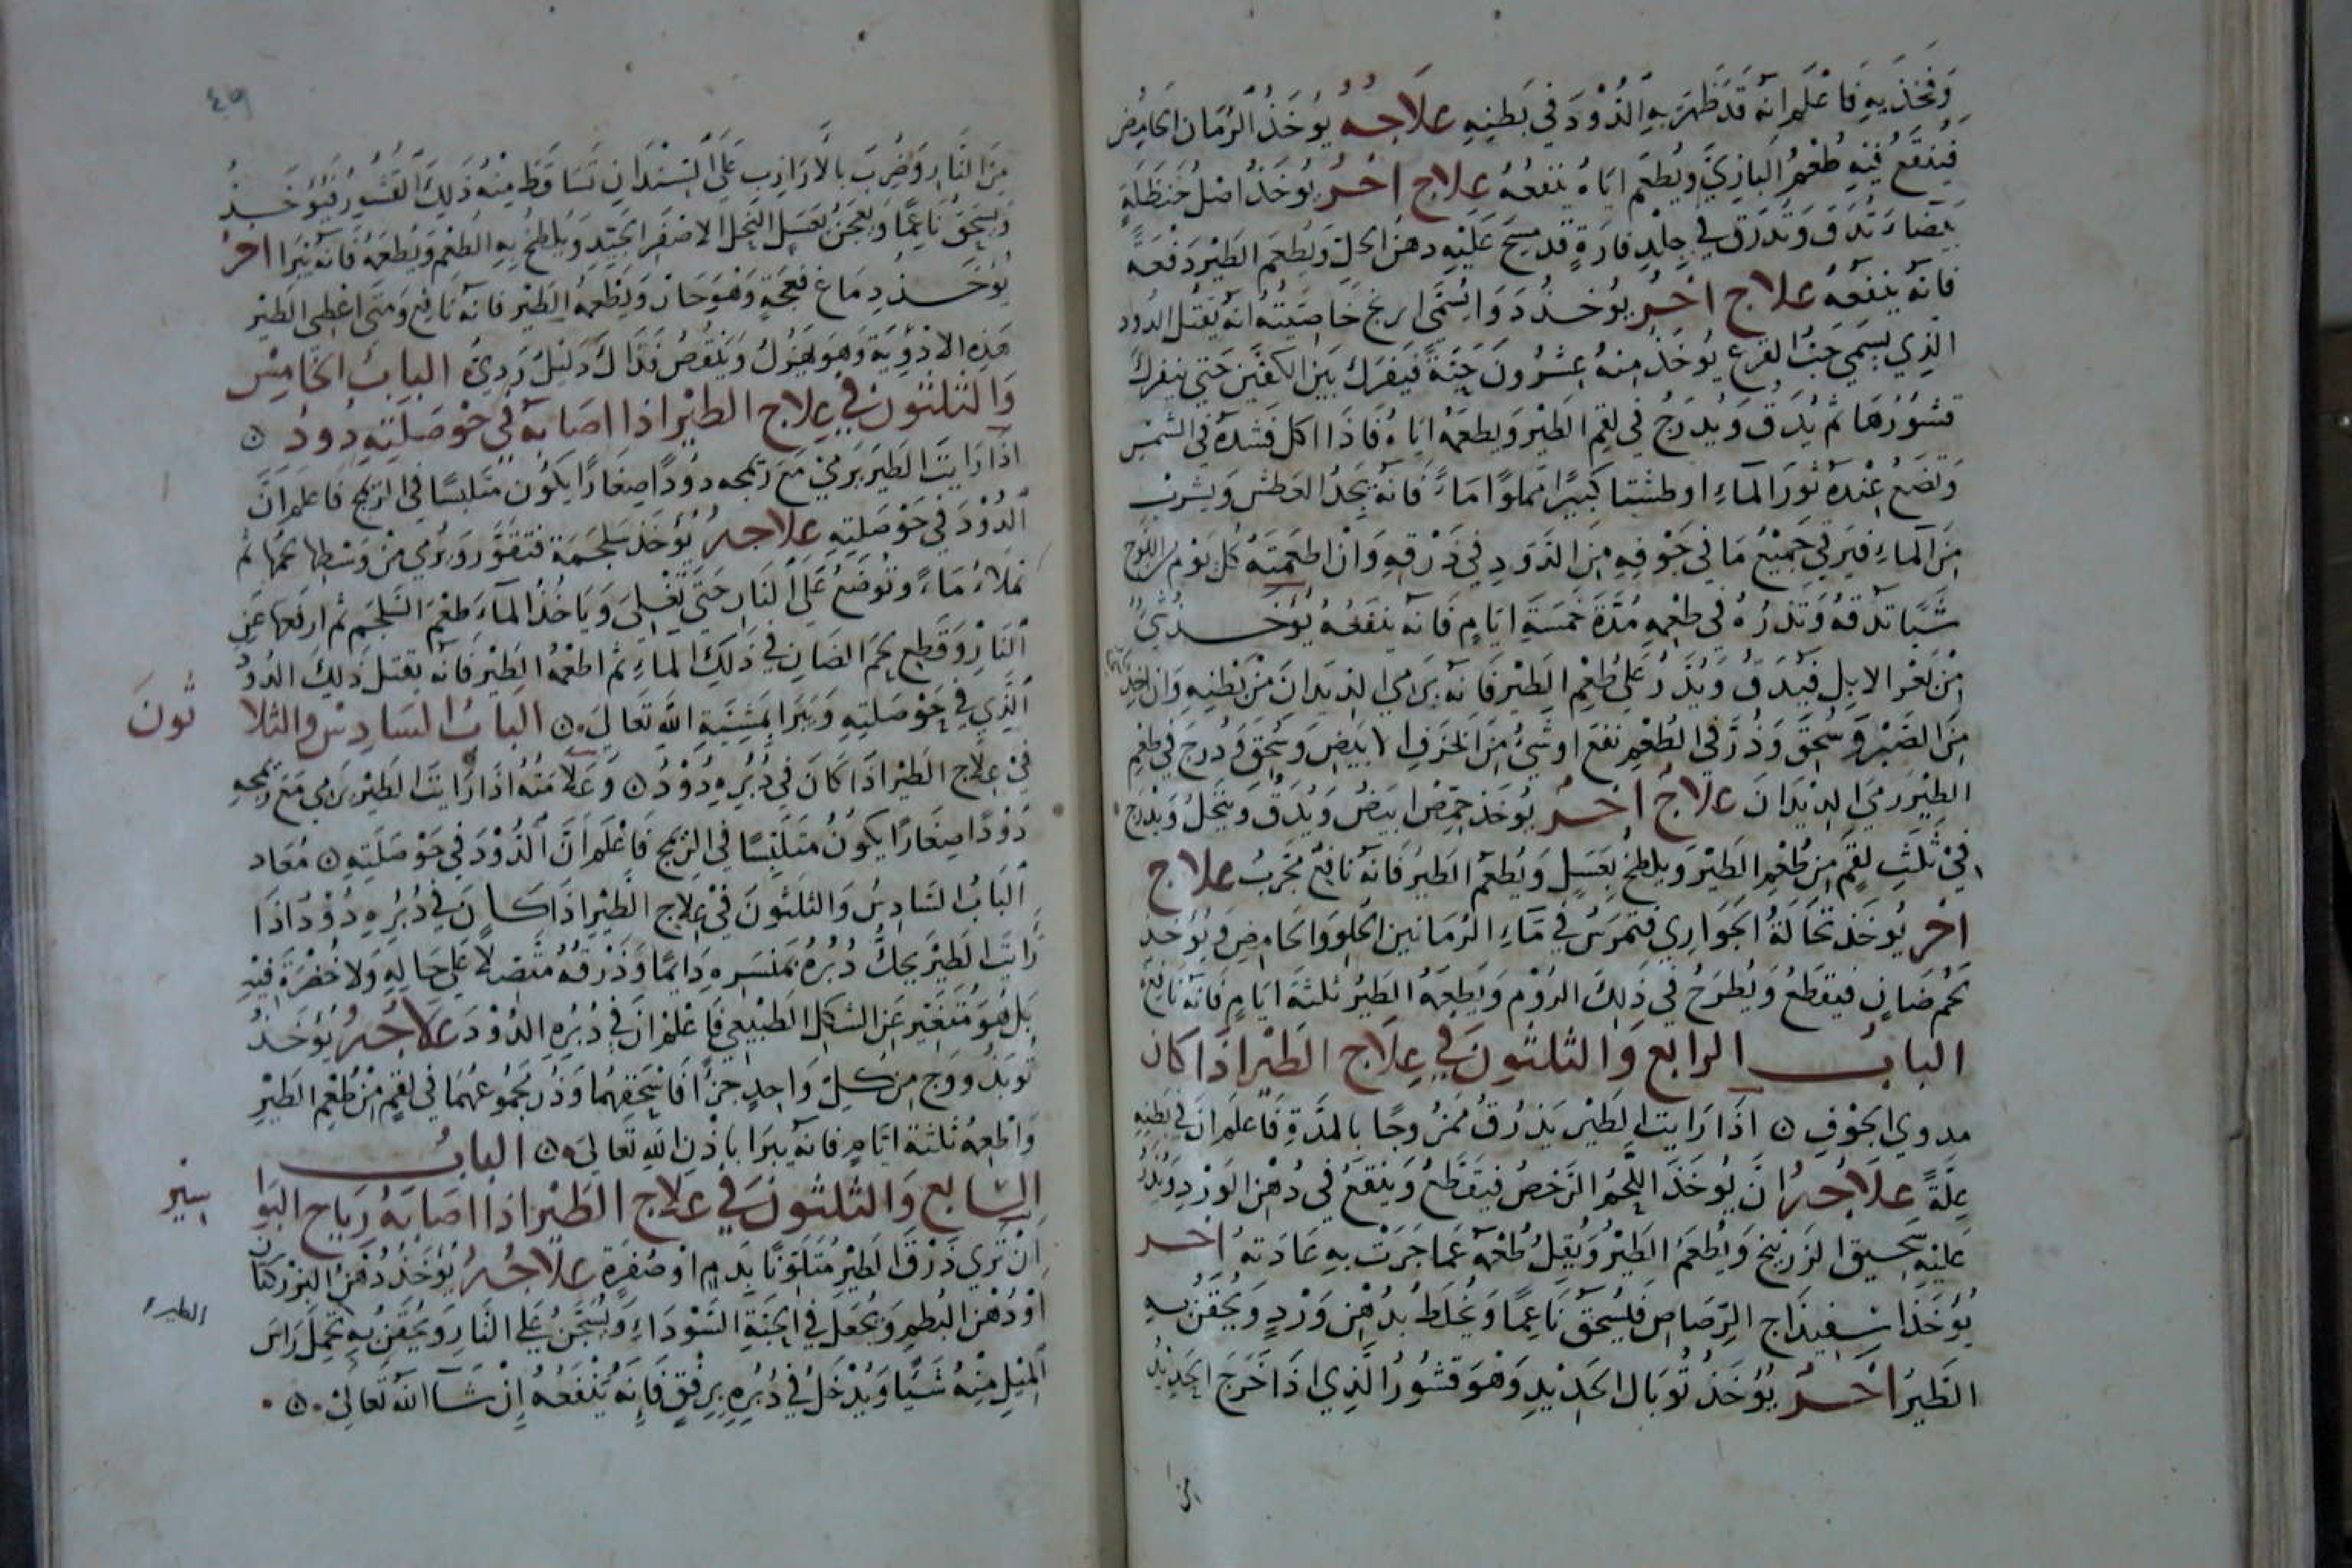 وَفَخِذَيهِ فَاعْلَم انّهُ قَدْ ظَهَرَ بِهِ الدُّوْدَ في بَطنِهِ علَاجُهُ يُوخَذُ الرُّمان الحَامِض
فيُنقَعُ فيْهِ طُعْمُ البَازِيّ ويُطعَم ايّاهُ ينفعُهُ علاج اخرُ يُوخَذُ اصْل حَنظَلَةٍ
بَيضَاء تُدَقَ وتُدرَق في جِلدِ فارَةٍ قد مسِحَ عَليْهِ دهن الخلّ ويُطعَم الطَيْر دَفْعَةً
فانّهُ ينفَعُهُ علاج اخرُ يُوخَذُ دَوَا يُسَمَّى ابرنج خَاصيّتُهُ انّهُ يقتل الدود
الّذِي يسَمي حَبّ القرع يُوخَذ مِنهُ عِشرُونَ حَبّةً فَيُفرَك بَيْنَ الكفّيْن حَتي ينفركَ
قشوُرُهَا ثم يُدَق وَيُدرَجُ في لقم الطَيْر ويطعَمُهُ ايّاهُ فَاذَا اكل فَشدهُ في الشمس
وَتضَعُ عِنْدهُ تَوْرَ الماءِ او طشتا كَبيرًا مَملوًا مَاءً فَانّهُ يَجدُ العَطش ويَشرب
مِنَ الماءِ فيَرمي جَميْعُ مَا في جَوْفِهِ مِنَ الدّود في ذَرْقهِ وَانْ اطعَمتهُ كُل يَوْم
شَيًا تدقهُ وَتذرُهُ في طعْمِهِ مُدّةَ خمسَةِ ايّامٍ فَانّهُ ينفَعُهُ يُوخَذ شيْ
مِنْ بَعْر الابِل فيُدَق وَيُذَر عَلي طُعْم الطَيْر فَانّهُ يَرمي الديدَانَ مِنْ بَطْنِهِ وَان اخذ
مِنَ الصَبْر وَسُحِقَ وَذُرّ في الطُعْمِ نفعَ او شَيْ مِنَ الخزَفِ الابيَضِ وَسُحِقَ وَدُرجَ في طعم
الطيْر رَمي الديْدَانَ علاجُ اخرُ يُوخَذ حِمّصُ ابيَضُ وَيُدَقُ وينخَلُ وَيُدرَج
في ثلَثِ لقَمٍ مِن طُعْم الطَيْر وَيلطخُ بِعَسَلٍ وَيُطعَم الطَيرُ فَانّهُ نافعُ مُجَربُ علاج
اخر يُوخَذ نُخَالَةُ الحوَّارِي فتُمرَسُ في مَاءِ الرُمّانين الحلو وَالحامِضِ وَيُوخَذ
لحْم ضَانٍ فيقطعُ وَيُطرَحُ في ذَلِكَ الروْم وَيُطعَمهُ الطَيْرُ ثلثة ايّامٍ فَانّهُ نَافعُ
البابُ الرابع وَالثلثونَ في عِلَاج الطَيْر اذا كان
مدوي الجَوْفِ ۞ اذَا رَايت الطَيْر يَذرُق مَمزُوجًا بالمدّةِ فَاعلَم ان في بَطنِهِ
عِلّةً علاجُهُ انْ يُوخَذَ اللّحمُ الرَخصُ فيقَطّعُ وينقعُ في دُهْن الوَرْدِ وَيُذَرُ
عَليْهِ سَحيق الزرنيْخ وَيُطعَمُ الطَيْرُ وَيُقلّ طُعْمُهُ عَمّا جَرَتْ بهِ عَادَتهُ اخر
يُوخَذ اسْفِيذَاج الرّصَاصِ فَليُسْحقُ نَاعِمًا وَيُخلَطُ بدُهْنِ وَرْدٍ وَيُحقَنُ بهِ
الطَيرُ اخَرُ يُوْخَذُ تُوبَال الحَديْدِ وَهوَ قشوُر الّذي اذَا خَرَجَ الحَديْدُ
من
٤٩
مِنَ النَّارِ وَضُربَ بالارَازِبِ عَلي السَندَانِ تَسَاقطَ مِنْهُ ذَلِكَ القُشوُر فَيُوخَذُ
وَيسحَق نَاعِمًا وَيُعجَنُ بعَسَل النّحلِ الاصْفَرِ الجَيّدِ وَيُلطَخُ بهِ الطُعْم وَيُطعَمُهُ فَانّهُ يَبرَا اخرُ
يُوخَذ دِمَاغ نعجَةٍ وَهْوَ حَارّ وَيُطعَمُهُ الطَيْر فَانّهُ نَافعْ وَمتَى اعْطي الطَيْر
هَذِهِ الادْوِيَةَ وَهوَ يَهْزُلُ وَينْقُصُ فَذَاكَ دَليْلُ رَدِيُ البابُ الخَامِسْ
وَالثلثونَ في عِلاج الطَيْر اذَا اصَابهُ في حَوْصَلَتِهِ دُودُ ۞
اذَا رَايتَ الطَيْرَ يَرميْ مَعَ رَمجه دوُدًا صِغَارًا يكوُن مَتَلبسًا في الرّمج فاعلم انَّ
الدُوْدَ في حَوْصَلَتِهِ علاجهُ يُؤخَذ سَلجَمَة فتقوَّرُ وَيُرمي مِنْ وَسْطها لحْمُهَا ثمْ
تملأ مَاءً وتُوضَعُ عَلَى النّار حَتّي يَغْلي وَيَاخذُ الماءَ طَعْمَ السَلجَمِ ثم ارفعها عَنِ
النَارِ وَقَطع لحمَ الضَان في ذَلِكَ الماءِ ثم اطعْمُهُ الطَيْر فَانّهُ يَقتلُ ذلِكَ الدودُ
الّذي في حَوْصَلتِهِ وَيَبرَا بمَشِيّةِ اللهِ تَعَالي ۞ البابُ السَادِسْ وَالثلا ثونَ
في عِلَاج الطَيْر اذَا كَانَ في دُبُرِهِ دُوْدُ ۞ وَعَلَامَتُهُ اذَا رَايتَ الطَيْر يَرمي مَعَ رَمجهِ
دُوْدًا صِغَارًا يَكوُنُ مَتَلَبّسًا في الرّمج فَاعْلَم اَنَّ الدُوْدَ في حَوْصَلَتِهِ ۞ مُعَاد
البَابُ السَادِسُ وَالثلثونَ في عِلاج الطَيْر اذَا كَانَ في دُبُرِهِ دُوْدُ اذَا
رَايتَ الطَيْر يحكّ دُبُرُهُ بمنسَرِهِ دَايمًا وَذَرْقهُ مُتّصِلًا عَلي حَالِهِ وَلَا خُضْرَةَ فيْهِ
بَل هُوَ مُتغيّر عَن الشكل الطَبيْعي فَاعْلَمْ انّ في دُبُرِهِ الدُوْدَ علاجُهُ يُوْخَذُ
تُوبَذ ووج مِن كلّ وَاحِدٍ جزًا فَاسْحَقهُمَا وَذُر مَجموُعهُمَا في لقَمٍ مِنْ طُعْمِ الطَيْرِ
وَاطْعِمهُ ثلثة ايّامٍ فانّهُ يَبرَا باذنِ اللهِ تَعَالي ۞ البابُ
السَابع وَالثلثونَ في علاج الطَيْر اذَا اصَابَهُ رِيَاح البَوَا سير
انْ تري ذَرْقَ الطَيْرِ مُتَلَوّنًا بدَمٍ اوْ صُفرَةٍ علاجُهُ يُوْخَذُ دُهْنُ البزْر كتان
اوْ دُهْن البُطم وَيُجعَل في الحَبّةِ السَوْدَاءِ وَيُسَخّنُ عَلي النَارِ وَيُحْقَنُ بهِ تحمل رَاسَ الطير
المِيْل مِنهُ شَيًا وَيُدْخَلُ في دُبُرِهِ برفقٍ فَانِهُ يُنْفَعُهُ اِنْ شَآ اللهُ تَعَالي ۞